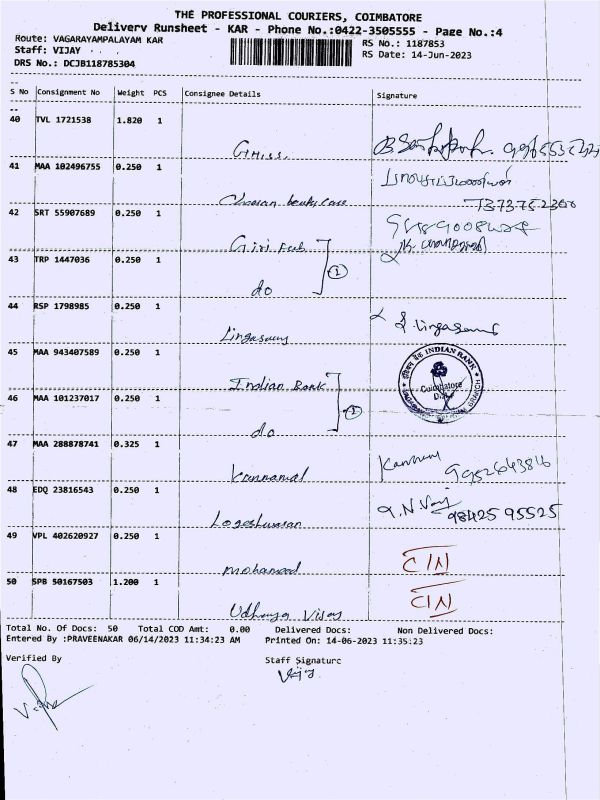 THE PROFESSIONAL COURIERS, COIMBATORE
Delivery Runsheet - KAR - Phone No.:0422-3505555 - Page No.:4
Route: VAGARAYAMPALAYAM KAR
RS No.: 1187853
Staff: VIJAY
RS Date: 14-Jun-2023
DRS No.: DCJB118785304
S No Consignment No Weight PCS Consignee Details Signature
40 TVL 1721538 1.820 1
41 MAA 102496755 0.250 1
7373752300
42 SRT 55907689 0.250 1
Giri Fab
43 TRP 1447036 0.250 1
do
44 RSP 1798985 0.250 1
Lingasamy
45 MAA 943407589 0.250 1
INDIAN BANK
Coimbatore
Indian Bank
46 MAA 101237017 0.250 1
do
47 MAA 288878741 0.325 1
Kannamal
9952643816
48 EDQ 23816543 0.250 1
Logeshwaran
98425 95525
49 VPL 402620927 0.250 1
mohamed
C/N
50 SPB 50167503 1.200 1
Udhaya Vijay
C/N
Total No. Of Docs: 50 Total COD Amt: 0.00 Delivered Docs: Non Delivered Docs:
Entered By :PRAVEENAKAR 06/14/2023 11:34:23 AM Printed On: 14-06-2023 11:35:23
Verified By Staff Signature